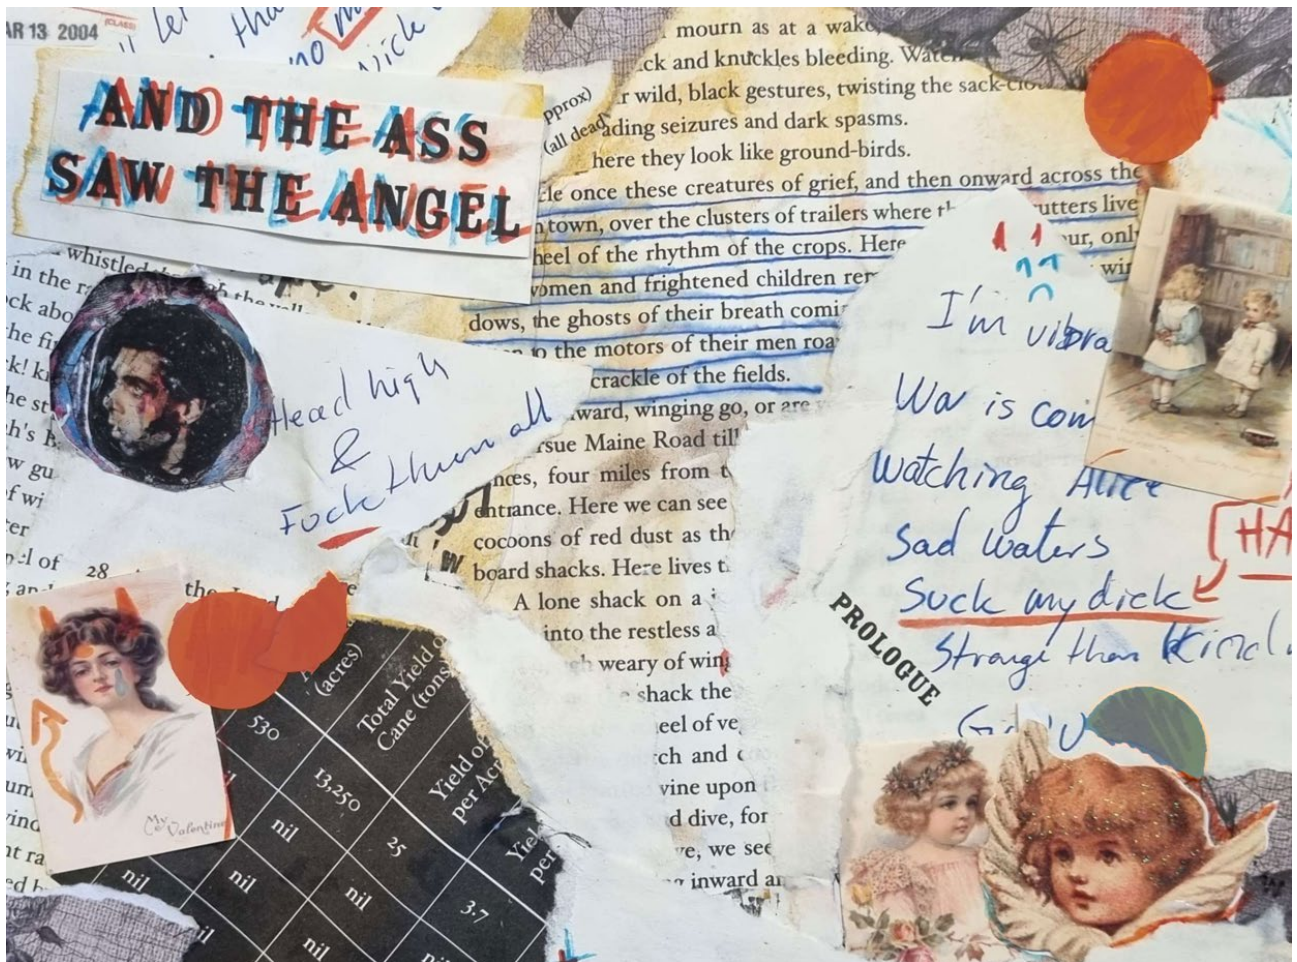 MAR 13 2004
(CLASS)
"let
no
AND THE ASS
SAW THE ANGEL
mourn as at a wake
ck and knuckles bleeding.
r wild, black gestures, twisting the sack-clo
pprox)
(all dead
ading seizures and dark spasms.
here they look like ground-birds.
le once these creatures of grief, and then onward across the
town, over the clusters of trailers where th utters live
heel of the rhythm of the crops. Here our, only
omen and frightened children rem win
dows, the ghosts of their breath comi
to the motors of their men roa
crackle of the fields.
ward, winging go, or are
rsue Maine Road till
nces, four miles from t
entrance. Here we can see
cocoons of red dust as th
board shacks. Here lives t
A lone shack on a
into the restless a
gh weary of wing
shack the
eel of ve
rch and c
vine upon
d dive, for
ve, we see
inward an
whistled
in the ra
ck abo
the fir
k! k
he st
h's
w gu
of wi
er
el of
28
the
Head high
&
Fuck them all
I'm vibra
War is com
Watching Alice
Sad Waters
Suck my dick
HA
Strange than Kind
PROLOGUE
(acres)
Total Yield of
Cane (tons)
Yield of
per Acre
Yield
per
530
13,250
25
3.7
nil
nil
nil
nil
nil
nil
nil
My Valentine